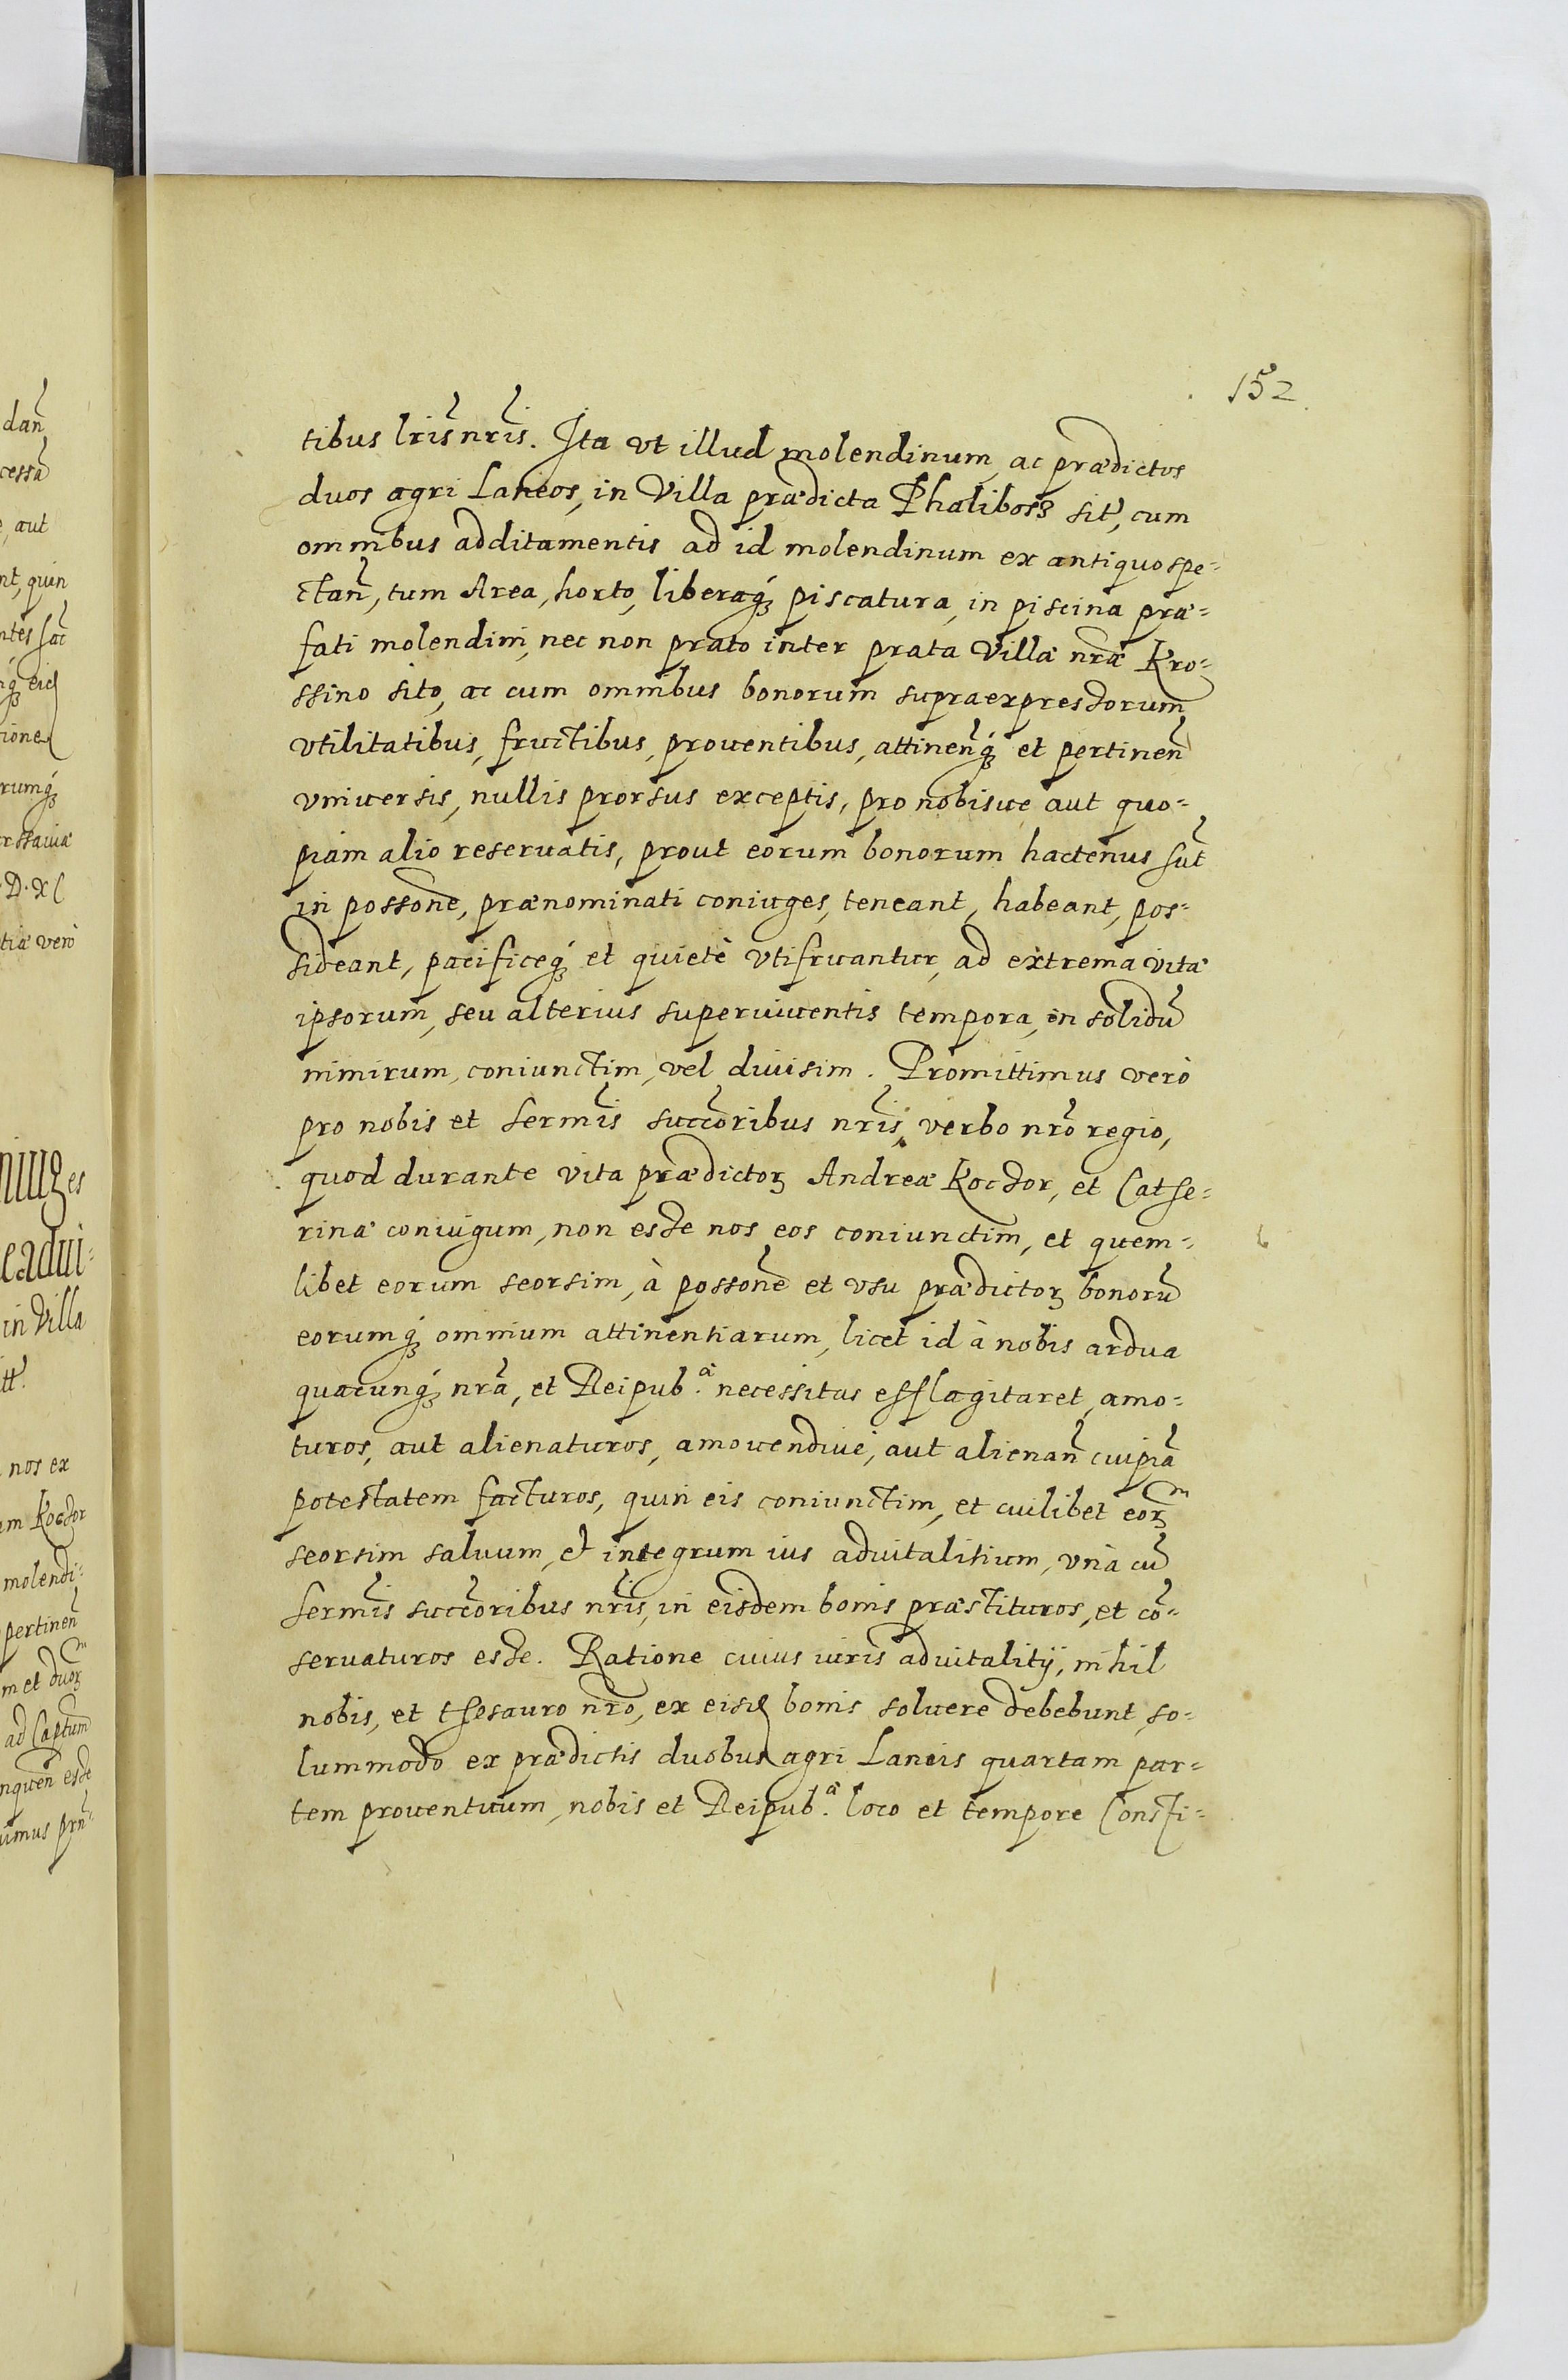 152
tibus lris nris. Ita vt illud molendinum, ac prædictos
duos agri Laneos, in Villa prædicta Phaliborz sit, cum
omnibus additamentis ad id molendinum ex antiquo spe-
ctan, tum Area, horto, liberaq; piscatura, in piscina præ-
fati molendini, nec non prato inter prata Villæ nræ Kro-
ssino sito, ac cum omnibus bonorum supraexpressorum
vtilitatibus, fructibus, prouentibus, attinenq; et pertinen
vniuersis, nullis prorsus exceptis, pro nobisue aut quo-
piam alio reseruatis, prout eorum bonorum hactenus sut
in possone, prænominati coniuges, teneant, habeant, pos-
sideant, pacificeq; et quietè vtifruantur, ad extrema vitæ
ipsorum, seu alterius superuiuentis tempora, in solidū
nimirum, coniunctim, vel diuisim. Promittimus verò
pro nobis et sermis succoribus nris, verbo nro regio,
quod durante vita prædictoꝝ Andreæ Kocdor, et Cathe-
rinæ coniugum, non esse nos eos coniunctim, et quem-
libet eorum seorsim, à possone et vsu prædictoꝝ bonorū
eorumq; omnium attinentiarum, licet id à nobis ardua
quæcunq; nra, et Reipub.ᵃ necessitas efflagitaret, amo-
turos, aut alienaturos, amouendiuè, aut alienan cuipiā
potestatem facturos, quin eis coniunctim, et cuilibet eoꝝ
seorsim saluum, et integrum ius aduitalitium, vnà cū
sermis succoribus nris, in eisdem bonis præstituros, et cō-
seruaturos esse. Ratione cuius iuris aduitalitij, nihil
nobis, et thesauro nro, ex eisd bonis soluere debebunt, so-
lummodo ex prædictis duobus agri Laneis quartam par-
tem prouentuum, nobis et Reipub.ᵃ loco et tempore Consti-